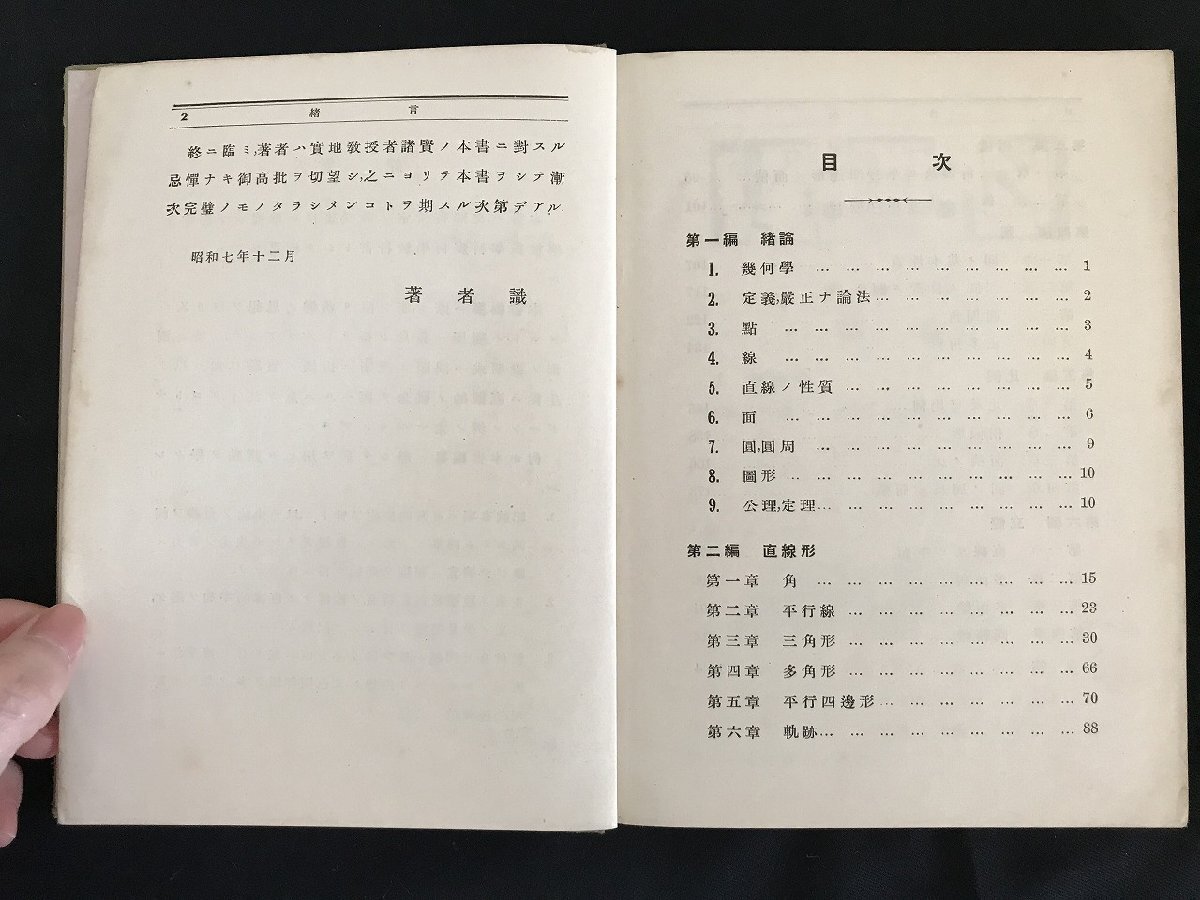 2 緒言
終ニ臨ミ,著者ハ實地敎授者諸賢ノ本書ニ對スル
忌憚ナキ御高批ヲ切望シ,之ニヨリテ本書ヲシテ漸
次完璧ノモノタラシメンコトヲ期スル次第デアル.
昭和七年十二月
著者識
目次
第一編 緒論
1. 幾何學 … … … … … … … … … 1
2. 定義,嚴正ナ論法 … … … … … … … 2
3. 點 … … … … … … … … … … 3
4. 線 … … … … … … … … … … 4
5. 直線ノ性質 … … … … … … … … 5
6. 面 … … … … … … … … … … 6
7. 圓,圓周 … … … … … … … … … 9
8. 圖形 … … … … … … … … … … 10
9. 公理,定理 … … … … … … … … … 10
第二編 直線形
第一章 角 … … … … … … … … … 15
第二章 平行線 … … … … … … … … 23
第三章 三角形 … … … … … … … … 30
第四章 多角形 … … … … … … … … 66
第五章 平行四邊形 … … … … … … … 70
第六章 軌跡 … … … … … … … … … 88